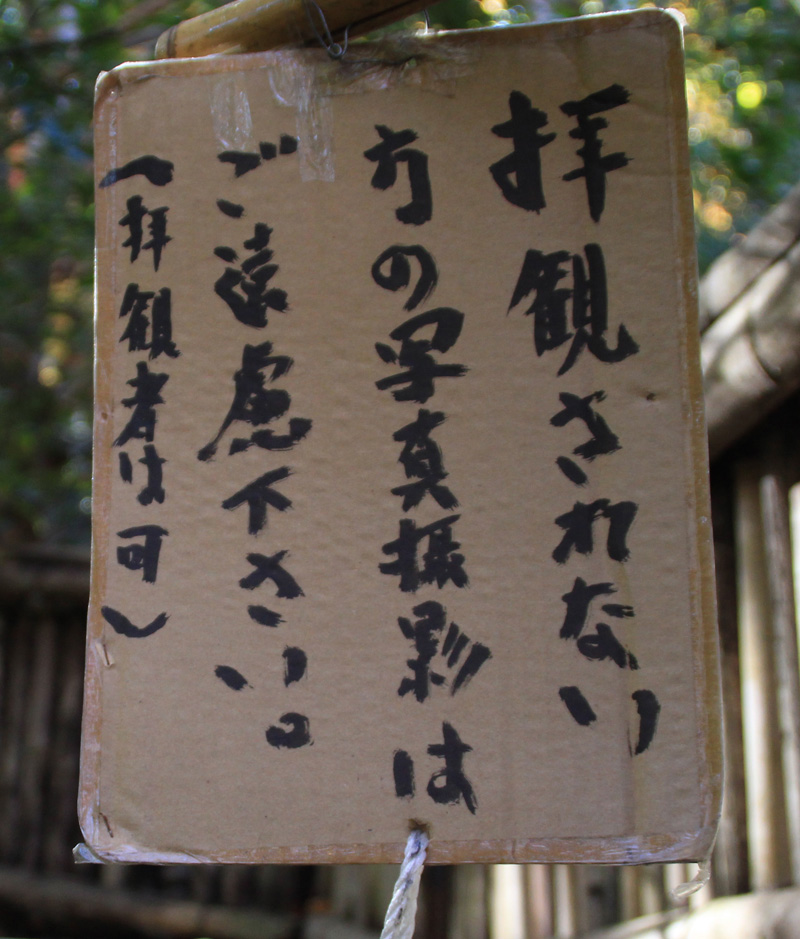 拝観されない
方の写真撮影は
ご遠慮下さい。
(拝観者は可)